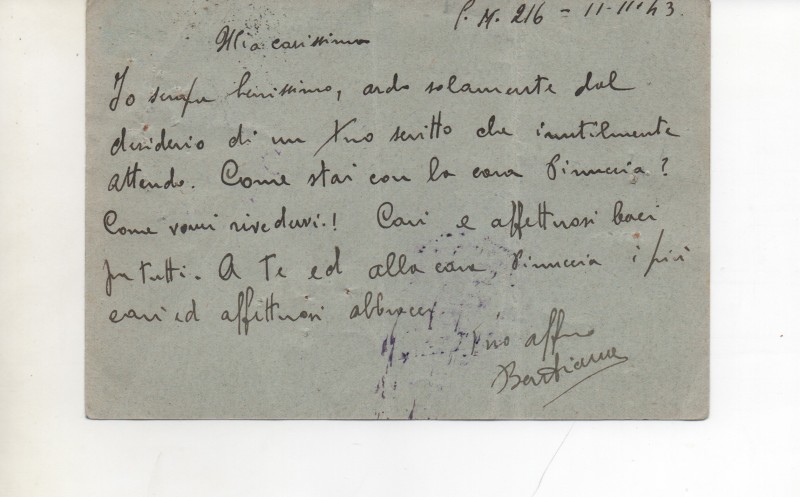 P. M. 216 - 11-11-43
Mia carissima
Io sempre benissimo, ardo solamente dal
desiderio di un tuo scritto che inutilmente
attendo. Come stai con la cara Pinuccia?
Come vorrei rivedervi.! Cari e affettuosi baci
per tutti. A Te ed alla cara, Pinuccia i più
cari ed affettuosi abbracci
tuo affmo